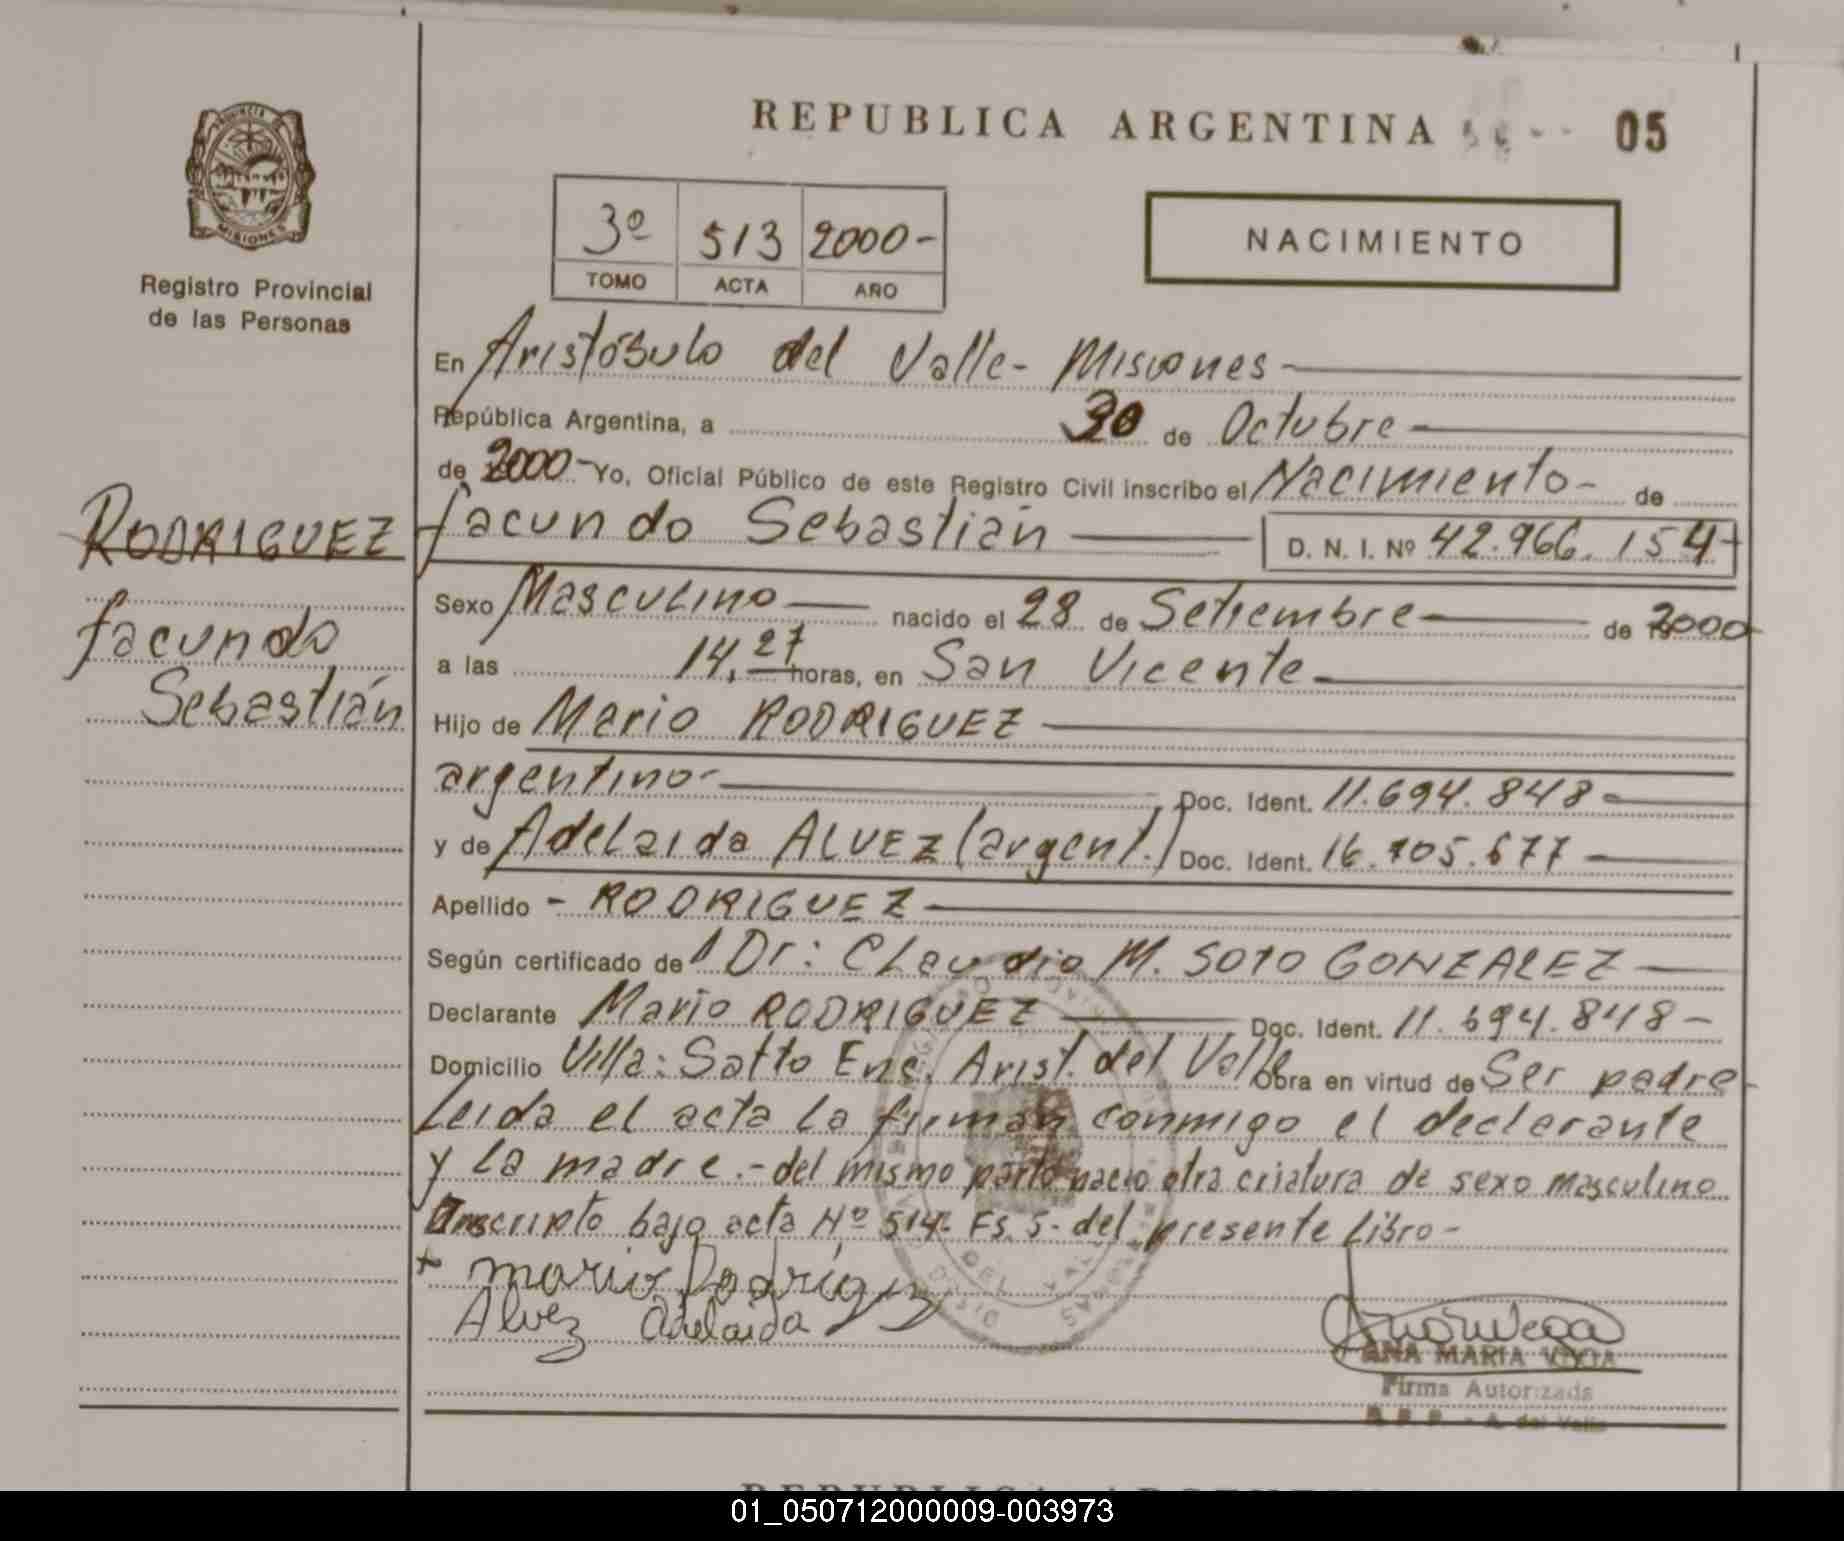 REPUBLICA ARGENTINA 05
PROVINCIA DE
MISIONES
Registro Provincial
de las Personas
3º 513 2000-
TOMO ACTA AÑO
NACIMIENTO
En Aristóbulo del Valle- Misiones
República Argentina, a 30 de Octubre
de 2000- Yo, Oficial Público de este Registro Civil inscribo el Nacimiento- de
RODRIGUEZ
facundo Sebastián D. N. I. Nº 42.966.154-
facundo
Sebastián
Sexo Masculino nacido el 28 de Setiembre de 2000
a las 14,27 horas, en San Vicente
Hijo de Mario RODRIGUEZ
argentino- Doc. Ident. 11.694.848-
y de Adelaida ALVEZ (argent.) Doc. Ident. 16.705.677-
Apellido - RODRIGUEZ
Según certificado de Dr: Claudio M. SOTO GONZALEZ
Declarante Mario RODRIGUEZ Doc. Ident. 11.694.848-
Domicilio Villa: Salto Enc. Arist. del Valle Obra en virtud de Ser padre-
Leida el acta la firman conmigo el declarante
y la madre.- del mismo parto nacio otra criatura de sexo masculino
Inscripto bajo acta Nº 514- Fs. 5- del presente libro-
+ mario Rodríguez
Alvez Adelaida
ANA MARIA VEGA
Firma Autorizada
A. del Valle
REPUBLICA ARGENTINA
01_050712000009-003973